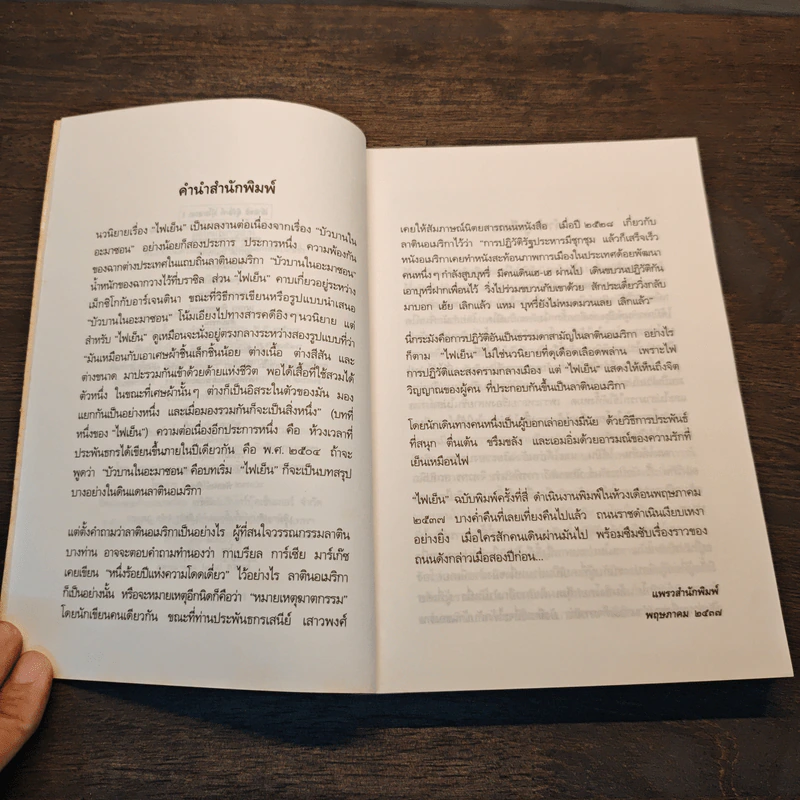 คำนำสำนักพิมพ์
นวนิยายเรื่อง "ไฟเย็น" เป็นผลงานต่อเนื่องจากเรื่อง "บัวบานใน
อะมาซอน" อย่างน้อยก็สองประการ ประการหนึ่ง ความพ้องกัน
ของฉากต่างประเทศในแถบถิ่นลาตินอเมริกา "บัวบานในอะมาซอน"
น้ำหนักของฉากวางไว้ที่บราซิล ส่วน "ไฟเย็น" คาบเกี่ยวอยู่ระหว่าง
เม็กซิโกกับอาร์เจนตินา ขณะที่วิธีการเขียนหรือรูปแบบนำเสนอ
"บัวบานในอะมาซอน" โน้มเอียงไปทางสารคดีอิงๆนวนิยาย แต่
สำหรับ "ไฟเย็น" ดูเหมือนจะนั่งอยู่ตรงกลางระหว่างสองรูปแบบที่ว่า
"มันเหมือนกับเอาเศษผ้าชิ้นเล็กชิ้นน้อย ต่างเนื้อ ต่างสีสัน และ
ต่างขนาด มาปะรวมกันเข้าด้วยด้ายแห่งชีวิต พอได้เสื้อที่ใช้สวมได้
ตัวหนึ่ง ในขณะที่เศษผ้านั้นๆ ต่างก็เป็นอิสระในตัวของมัน มอง
แยกกันเป็นอย่างหนึ่ง และเมื่อมองรวมกันก็จะเป็นสิ่งหนึ่ง" (บทที่
หนึ่งของ "ไฟเย็น") ความต่อเนื่องอีกประการหนึ่ง คือ ห้วงเวลาที่
ประพันธกรได้เขียนขึ้นภายในปีเดียวกัน คือ พ.ศ. ๒๕๐๔ ถ้าจะ
พูดว่า "บัวบานในอะมาซอน" คือบทเริ่ม "ไฟเย็น" ก็จะเป็นบทสรุป
บางอย่างในดินแดนลาตินอเมริกา
แต่ตั้งคำถามว่าลาตินอเมริกาเป็นอย่างไร ผู้ที่สนใจวรรณกรรมลาติน
บางท่าน อาจจะตอบคำถามทำนองว่า กาเบรียล การ์เซีย มาร์เก๊ซ
เคยเขียน "หนึ่งร้อยปีแห่งความโดดเดี่ยว" ไว้อย่างไร ลาตินอเมริกา
ก็เป็นอย่างนั้น หรือจะหมายเหตุอีกนิดก็คือว่า "หมายเหตุฆาตกรรม"
โดยนักเขียนคนเดียวกัน ขณะที่ท่านประพันธกรเสนีย์ เสาวพงศ์
เคยให้สัมภาษณ์นิตยสารถนนหนังสือ เมื่อปี ๒๕๒๘ เกี่ยวกับ
ลาตินอเมริกาไว้ว่า "การปฏิวัติรัฐประหารมีชุกชุม แล้วก็เสร็จเร็ว
หนังอเมริกาเคยทำหนังสะท้อนภาพการเมืองในประเทศด้อยพัฒนา
คนหนึ่งๆกำลังสูบบุหรี่ มีคนเดินเฮ-เฮ ผ่านไป เดินขบวนปฏิวัติกัน
เอาบุหรี่ฝากเพื่อนไว้ วิ่งไปร่วมขบวนกับเขาด้วย สักประเดี๋ยววิ่งกลับ
มาบอก เฮ้ย เลิกแล้ว แหม บุหรี่ยังไม่หมดมวนเลย เลิกแล้ว"
นี่กระมังคือการปฏิวัติอันเป็นธรรมดาสามัญในลาตินอเมริกา อย่างไร
ก็ตาม "ไฟเย็น" ไม่ใช่นวนิยายที่ดุเดือดเลือดพล่าน เพราะไฟ
การปฏิวัติและสงครามกลางเมือง แต่ "ไฟเย็น" แสดงให้เห็นถึงจิต
วิญญาณของผู้คน ที่ประกอบกันขึ้นเป็นลาตินอเมริกา
โดยนักเดินทางคนหนึ่งเป็นผู้บอกเล่าอย่างมีนัย ด้วยวิธีการประพันธ์
ที่สนุก ตื่นเต้น ขรึมขลัง และเอมอิ่มด้วยอารมณ์ของความรักที่
เย็นเหมือนไฟ
"ไฟเย็น" ฉบับพิมพ์ครั้งที่สี่ ดำเนินงานพิมพ์ในห้วงเดือนพฤษภาคม
๒๕๓๗ บางค่ำคืนที่เลยเที่ยงคืนไปแล้ว ถนนราชดำเนินเงียบเหงา
อย่างยิ่ง เมื่อใครสักคนเดินผ่านมันไป พร้อมซึมซับเรื่องราวของ
ถนนดังกล่าวเมื่อสองปีก่อน...
แพรวสำนักพิมพ์
พฤษภาคม ๒๕๓๗